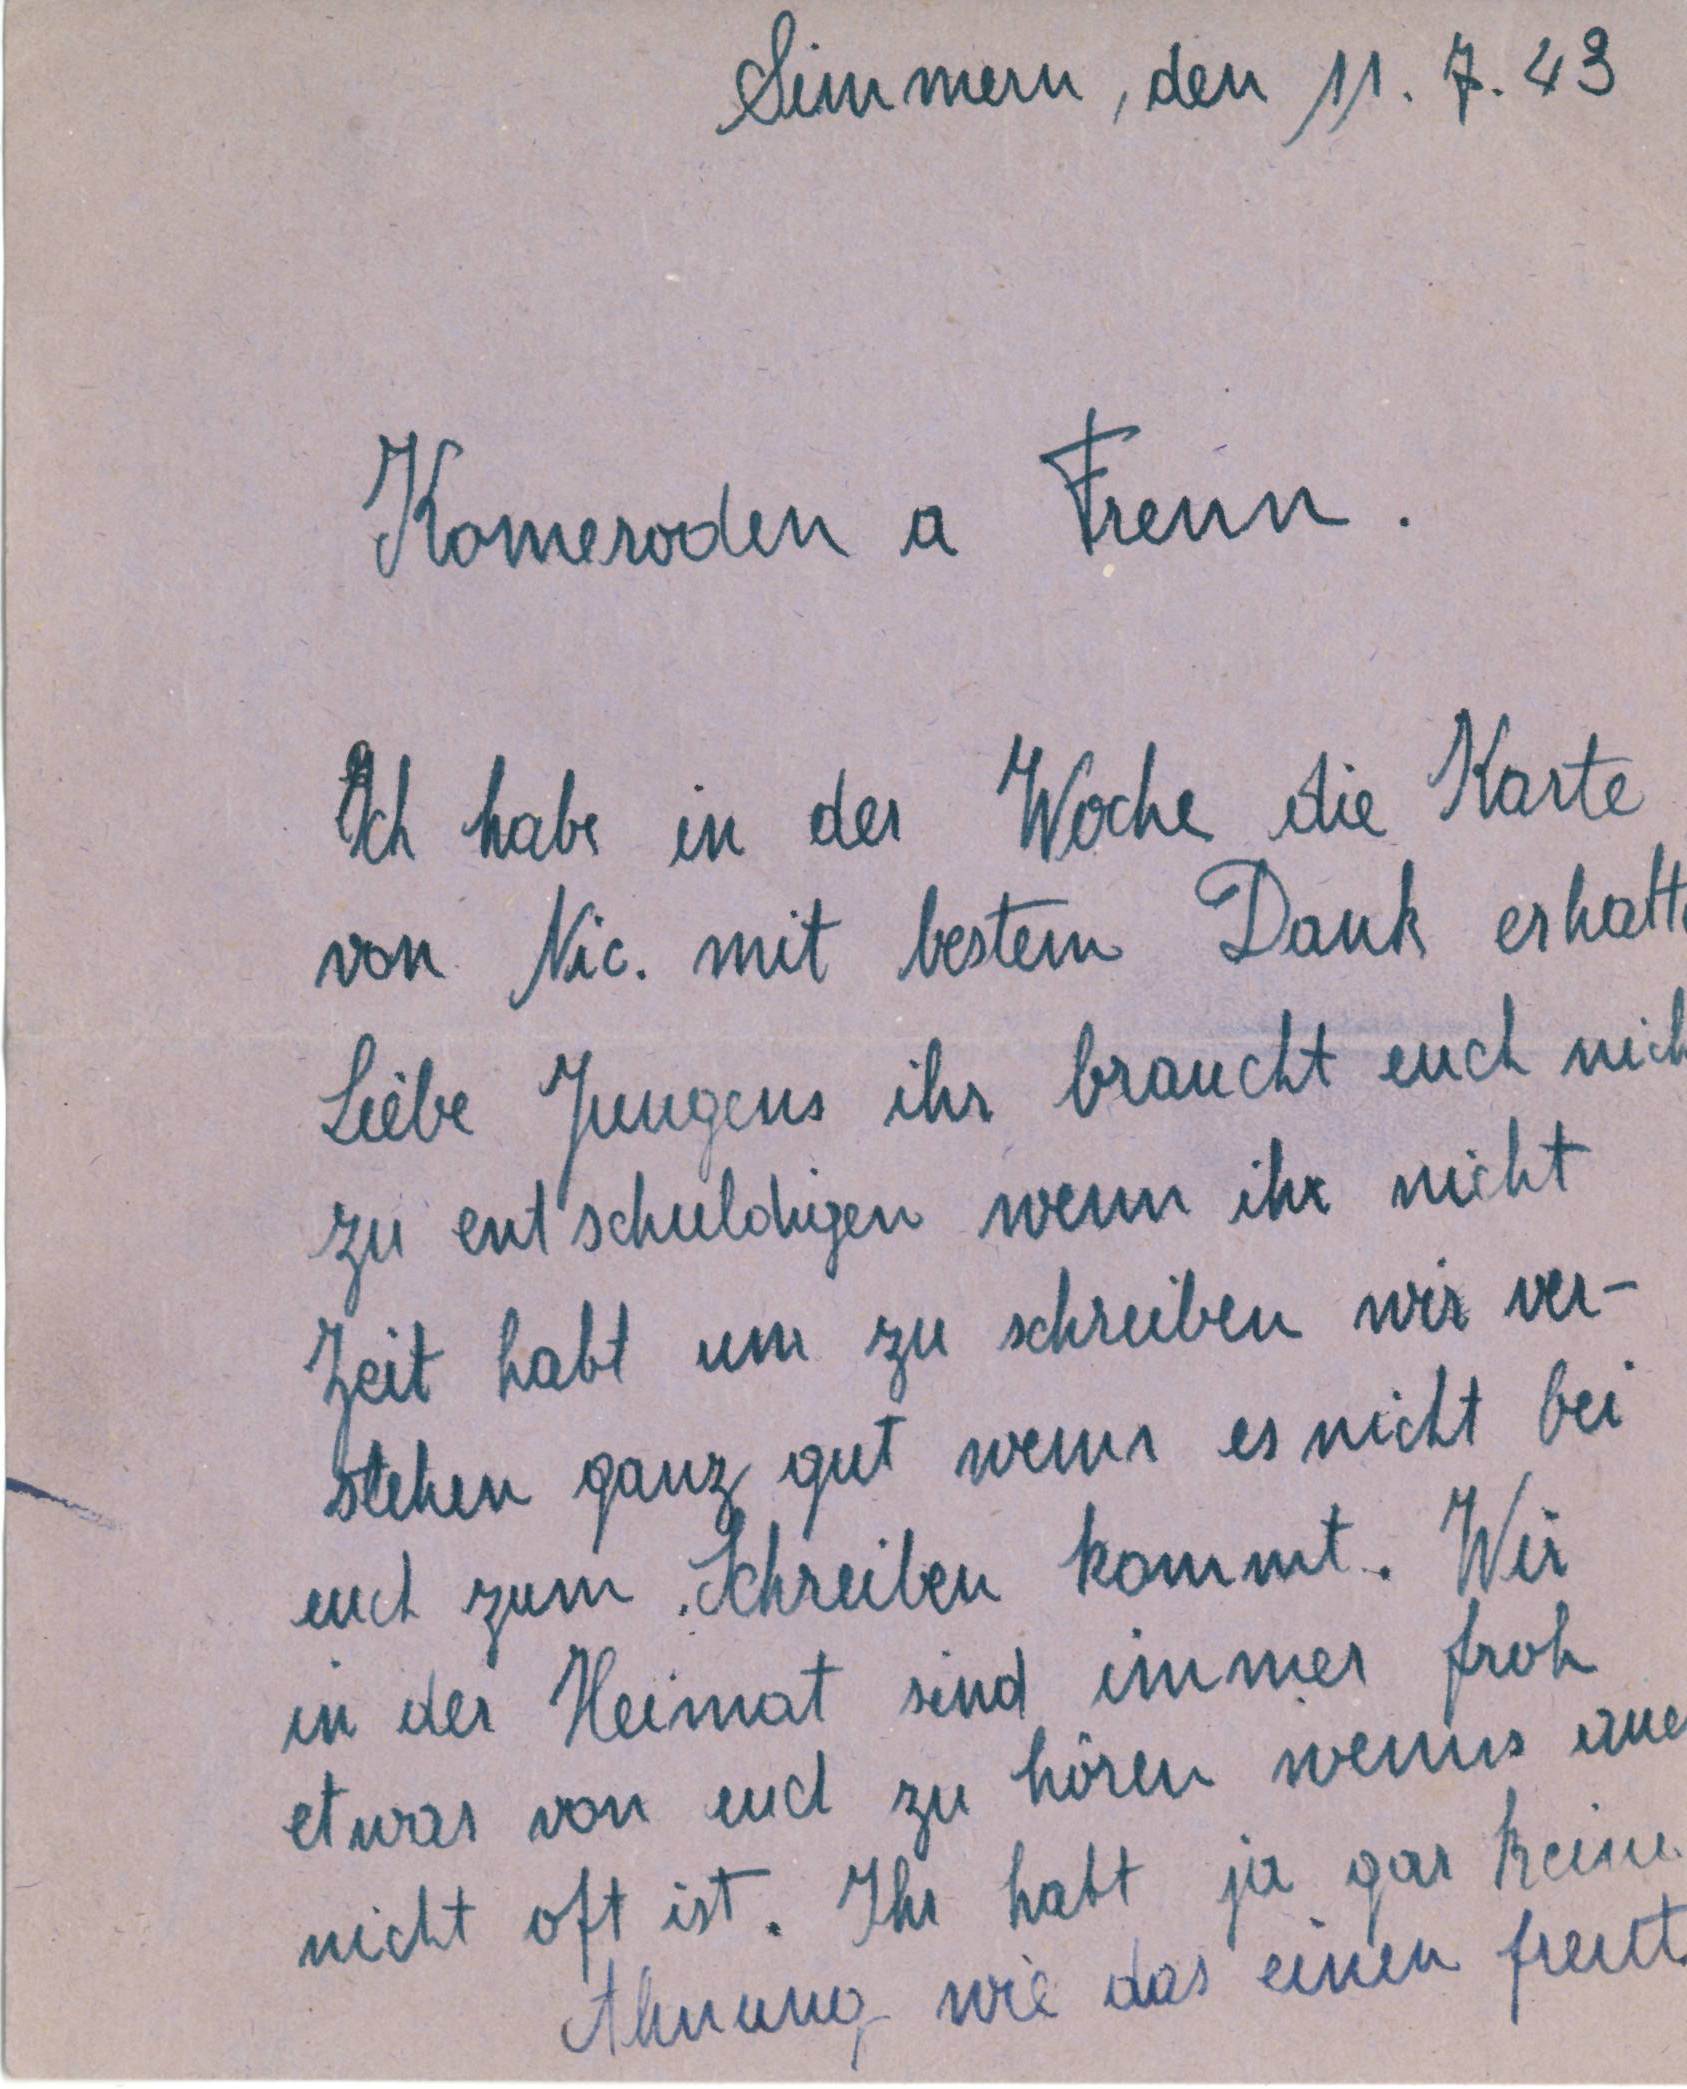 Simmern, den 11. 7. 43
Komeroden a Frenn.
Ich habe in der Woche die Karte
von Nic. mit bestem Dank erhalte
Liebe Jungens ihr braucht euch nich
zu entschuldigen wenn ihr nicht
Zeit habt um zu schreiben wir ver-
stehen ganz gut wenn es nicht bei
euch zum Schreiben kommt. Wir
in der Heimat sind immer froh
etwas von euch zu hören wenns auc
nicht oft ist. Ihr habt ja gar keine
Ahnung wie das einen freut.